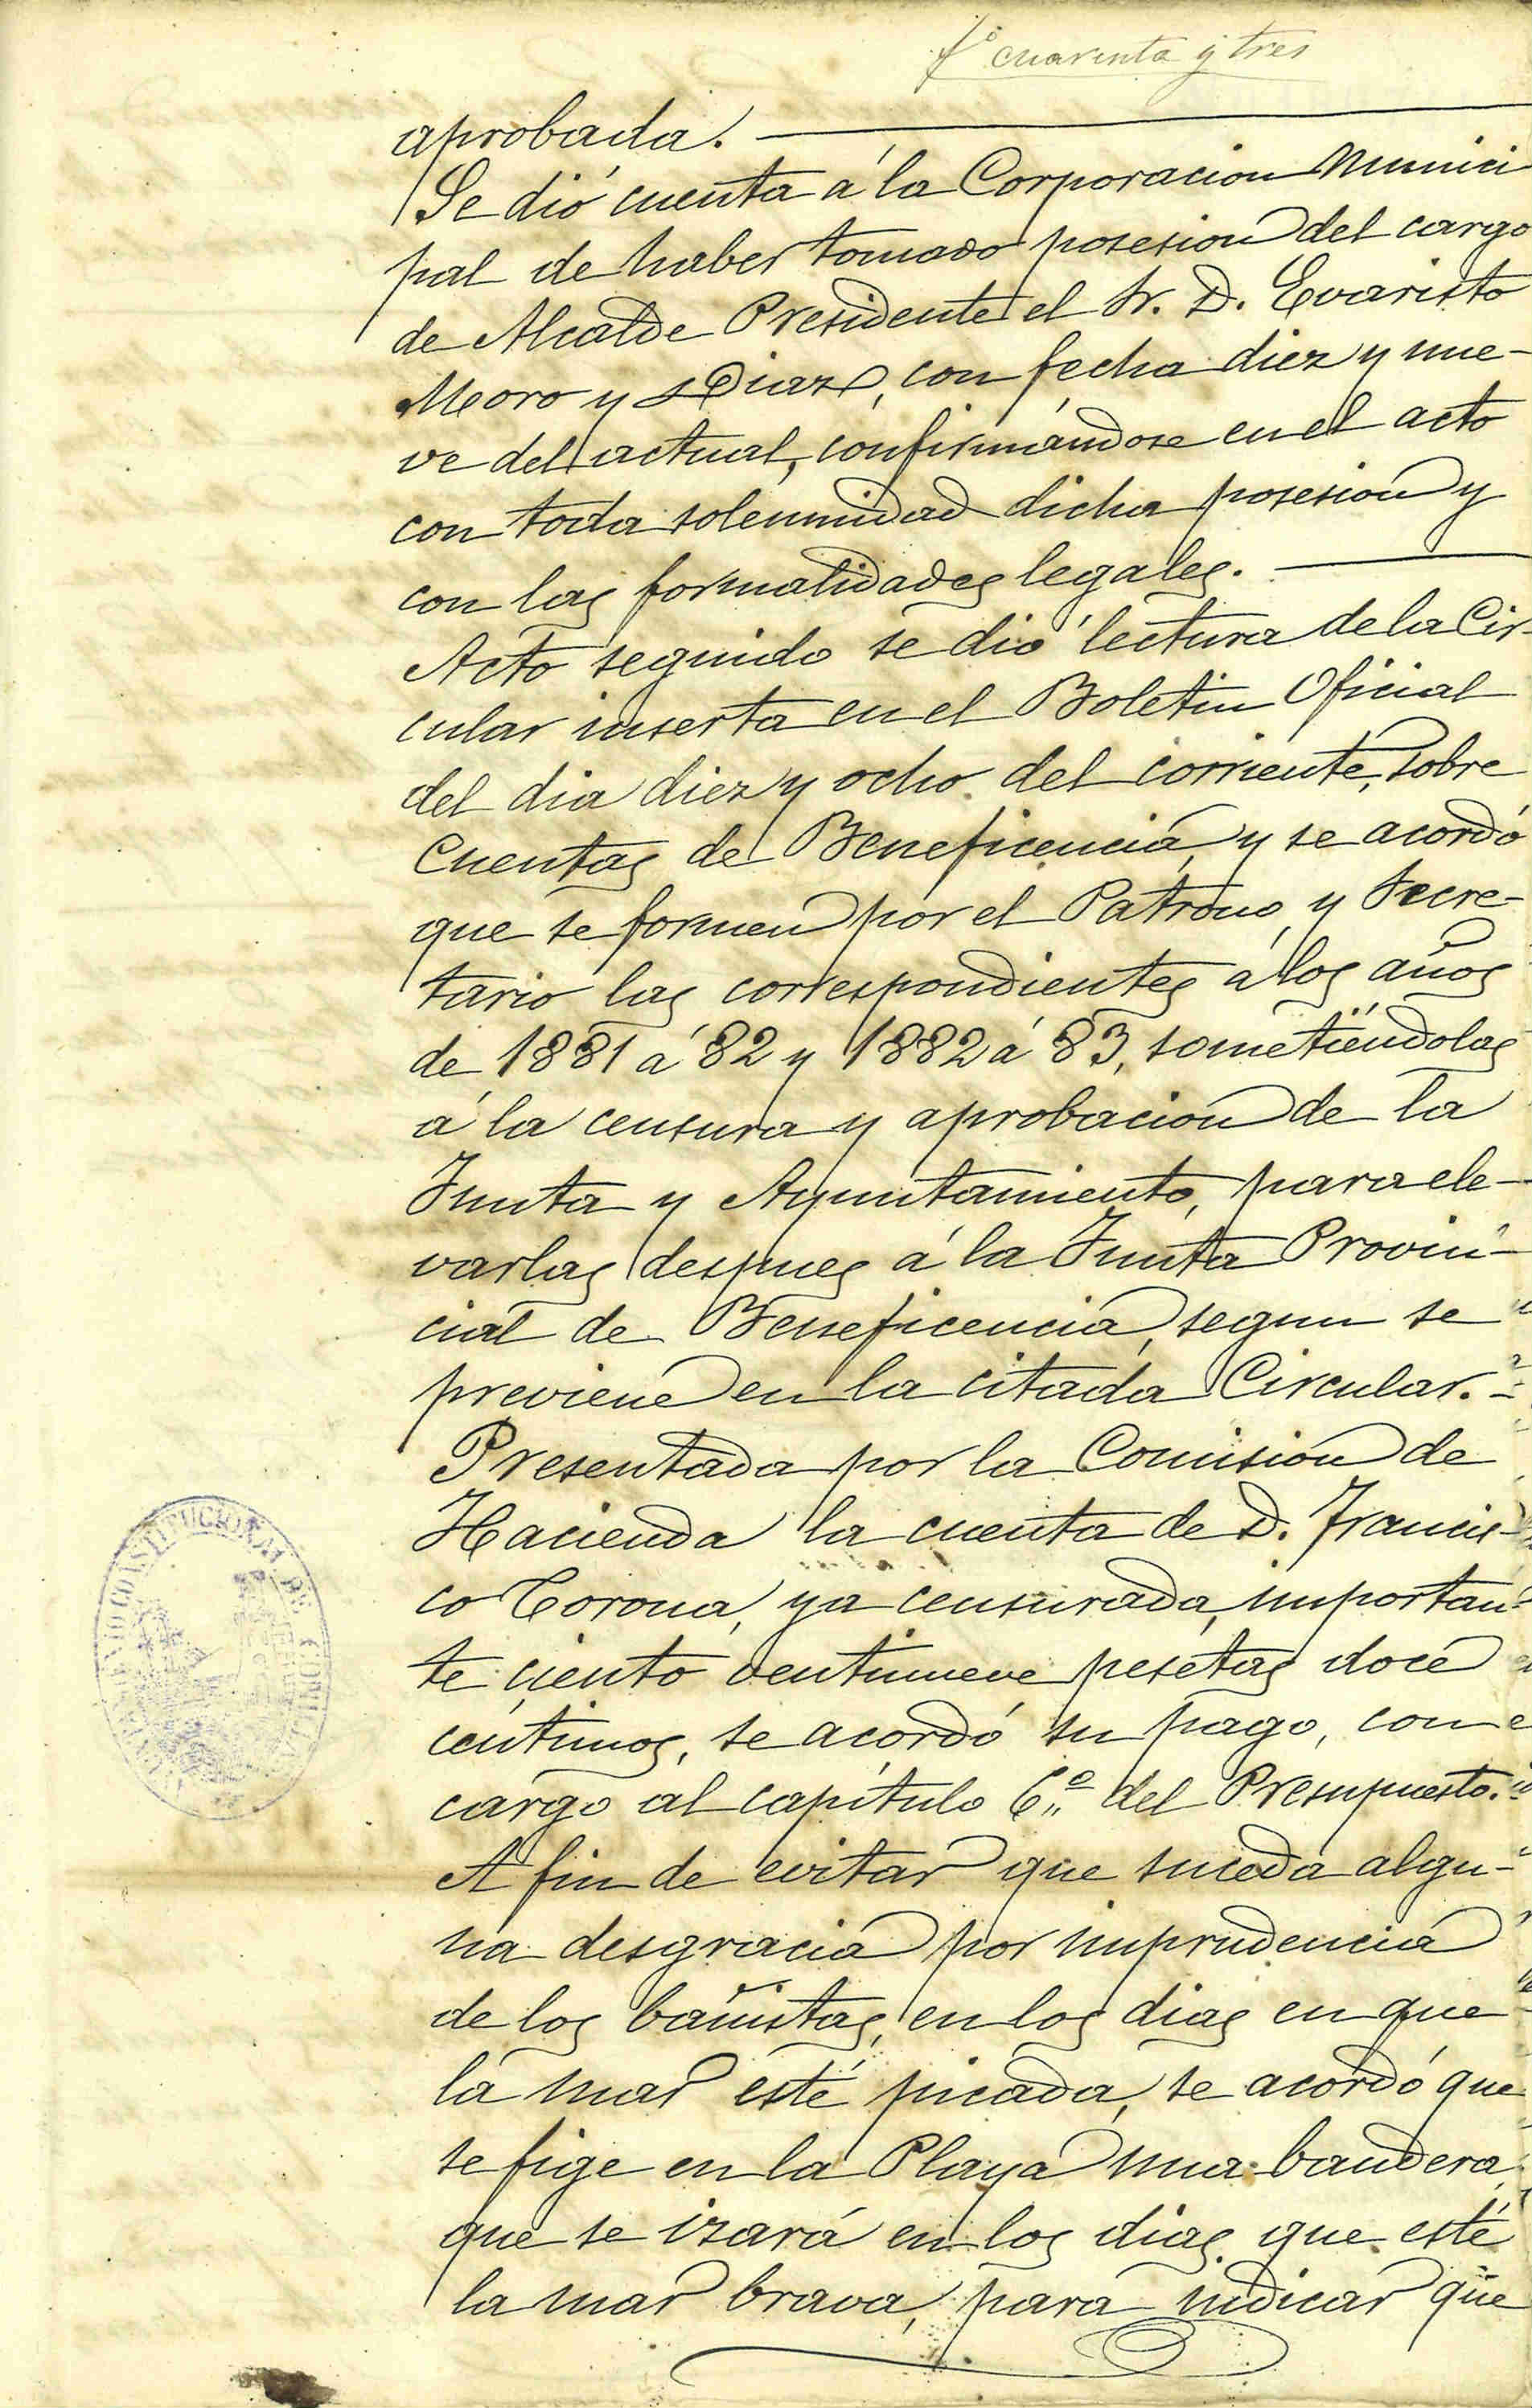 fº cuarenta y tres
aprobada.
Se dió cuenta á la Corporacion Munici
pal de haber tomado posesion del cargo
de Alcalde Presidente el Sr. D. Evaristo
Moro y Diaz, con fecha diez y nue-
ve del actual, confirmándose en el acto
con toda solemnidad dicha posesion y
con las formalidades legales.
Acto seguido se dió lectura de la Cir-
cular inserta en el Boletin Oficial
del dia diez y ocho del corriente, sobre
Cuentas de Beneficencia, y se acordó
que se formen por el Patrono y Secre-
tario las correspondientes á los años
de 1881 á 82 y 1882 á 83, sometiéndolas
á la censura y aprobacion de la
Junta y Ayuntamiento, para ele-
varlas despues á la Junta Provin-
cial de Beneficencia, segun se
previene en la citada Circular.=
Presentada por la Comision de
Hacienda la cuenta de D. Francis-
co Corona, ya censurada, importan-
te ciento ventinueve pesetas doce
céntimos, se acordó su pago, con
cargo al capítulo 6.º del Presupuesto.=
A fin de evitar que suceda algu-
na desgracia por imprudencia
de los bañistas, en los dias en que
la mar esté picada, se acordó que
se fige en la Playa una bandera,
que se izará en los dias que esté
la mar brava, para indicar que
CONSTITUCIONAL DE